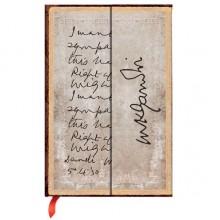 I want
sympa
this ba
Right ag
Migh
I want
sympa
this ba
Right ag
Might
Dandi M
5.4.30
MKGandhi